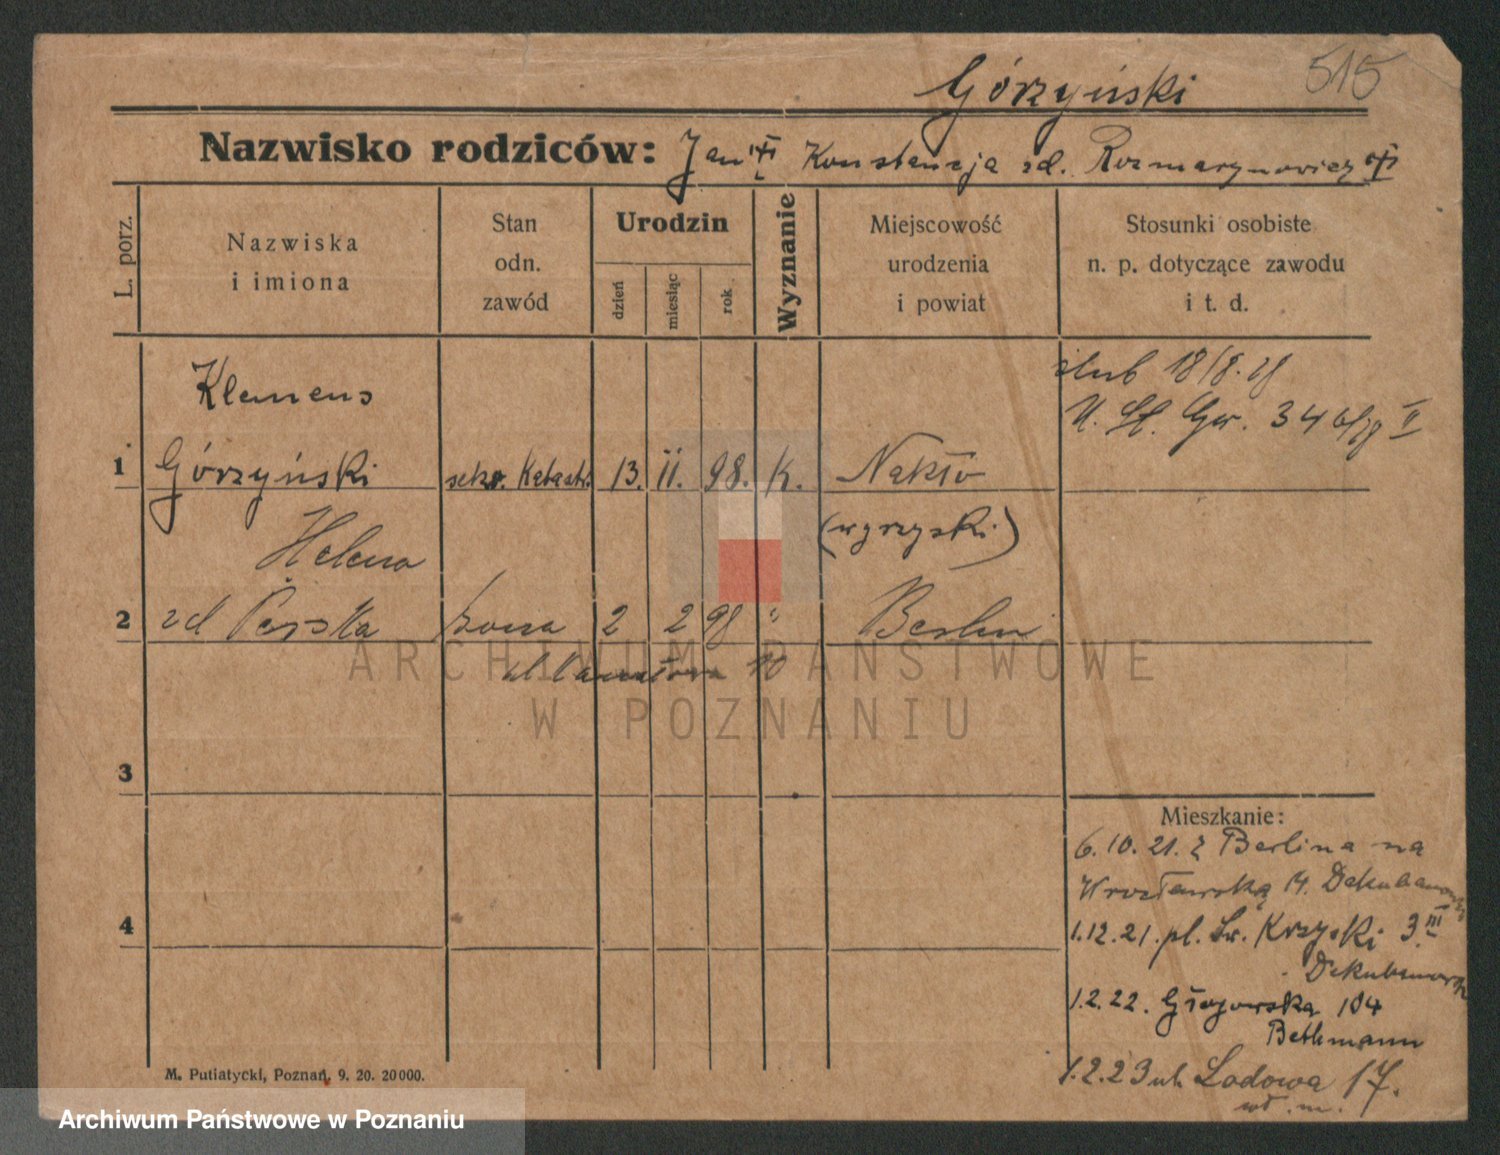 Górzyński 515
Nazwisko rodziców: Jan Konstancja zd. Rozmarynowicz
L. porz.
Nazwiska
i imiona
Stan
odn.
zawód
Urodzin
dzień
miesiąc
rok
Wyznanie
Miejscowość
urodzenia
i powiat
Stosunki osobiste
n. p. dotyczące zawodu
i t. d.
Klemens
ślub 18/8. 28
U. St. Gw. 346/28 II
1 Górzyński sekr. Katastr. 13. II. 98. k. Nakło
(wyrzyski)
Helena
2 zd Perska żona 2 2 98 " Berlin
10
3
4
Mieszkanie:
6. 10. 21. z Berlina na
Wrocławską 14.
1.12.21. pl. Św. Krzyski 3 III
1.2.22. Głogowska 104
Bethmann
1.2.23 ul. Lodowa 17.
wł. m.
M. Putiatycki, Poznań, 9. 20. 20000.
ARCHIWUM PAŃSTWOWE
W POZNANIU
Archiwum Państwowe w Poznaniu